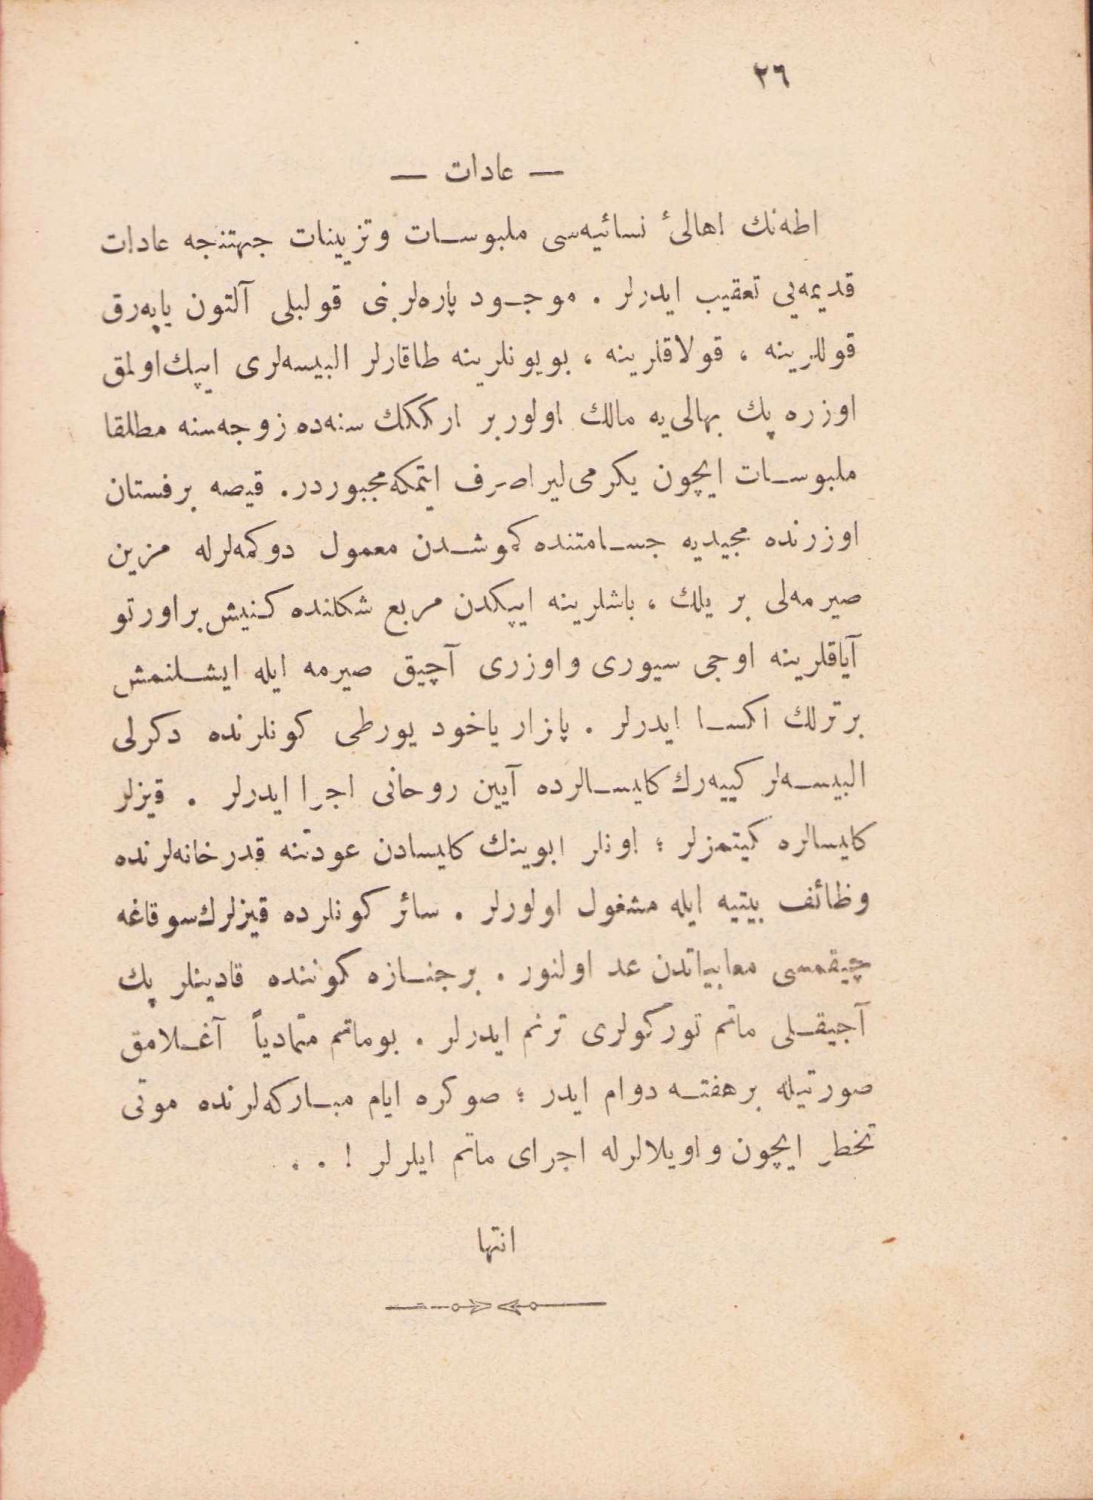 ٢٦
— عادات —
اطه‌نك اهالیٔ نسائیه‌سی ملبوسات وتزیینات جهتنجه عادات
قدیمه‌یی تعقیب ایدرلر . موجود پاره‌لرینی قولبلی آلتون یاپه‌رق
قوللرینه ، قولاقلرینه ، بویونلرینه طاقارلر البیسه‌لری ایپك اولمق
اوزره پك بهالی‌یه مالك اولور بر ارككك سنه‌ده زوجه‌سنه مطلقا
ملبوسات ایچون یكرمی لیرا صرف ایتمكه مجبوردر. قیصه برفستان
اوزرنده مجیدیه جسامتنده كموشدن معمول دوكمه‌لرله مزین
صیرمه‌لی بر یلك ، باشلرینه ایپكدن مربع شكلنده كنیش براورتو
آیاقلرینه اوجی سیوری واوزری آچیق صیرمه ایله ایشلنمش
برترلك اكسا ایدرلر . پازار یاخود یورطی كونلرنده دكرلی
البیسه‌لر كییه‌رك كلیسالرده آیین روحانی اجرا ایدرلر . قیزلر
كلیسالره كیتمزلر ؛ اونلر ابوینك كلیسادن عودتنه قدر خانه‌لرنده
وظائف بیتیه ایله مشغول اولورلر . سائر كونلرده قیزلرك سوقاغه
چیقمسی معایباتدن عد اولنور . برجنازه كوننده قادینلر پك
آجیقلی ماتم توركولری ترنم ایدرلر . بوماتم متمادیاً آغلامق
صورتیله برهفته دوام ایدر ؛ صوكره ایام مباركه‌لرنده موتی
تخطر ایچون واویلالرله اجرای ماتم ایلرلر ! . .
انتها